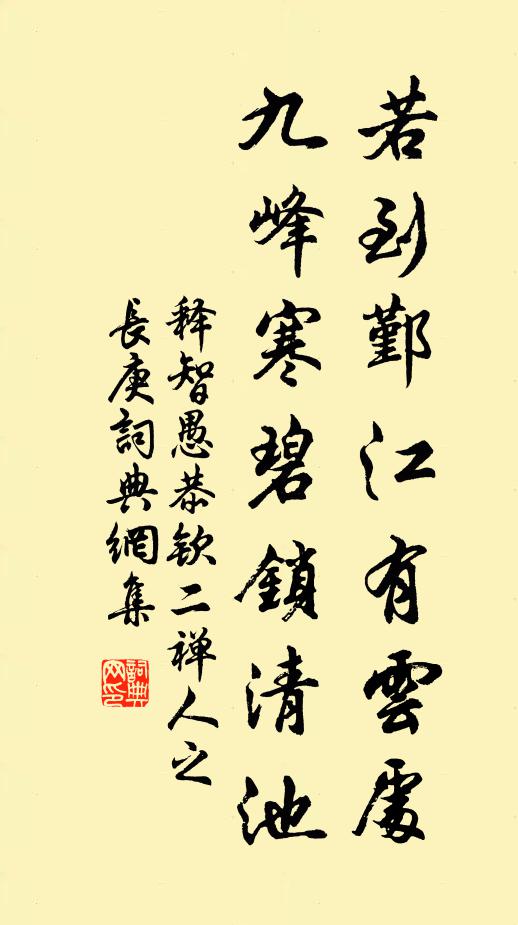 若到鄞江有雲處
九峰寒碧鎖清池
释智愚恭欽二禅人之
長庚詞典網集
詞典网印